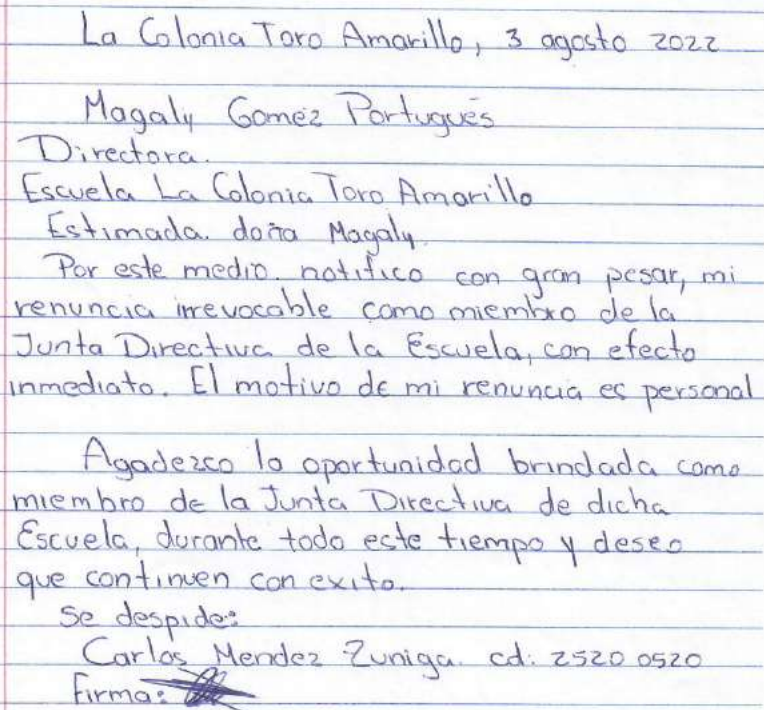 La Colonia Toro Amarillo, 3 agosto 2022
Magaly Gomez Portugués
Directora.
Escuela La Colonia Toro Amarillo
Estimada. doña Magaly.
Por este medio. notifico con gran pesar, mi
renuncia irrevocable como miembro de la
Junta Directiva de la Escuela, con efecto
inmediato. El motivo de mi renuncia es personal
Agadezco la oportunidad brindada como
miembro de la Junta Directiva de dicha
Escuela, durante todo este tiempo y deseo
que continuen con exito.
Se despide:
Carlos Mendez Zuniga. cd: 2520 0520
Firma: